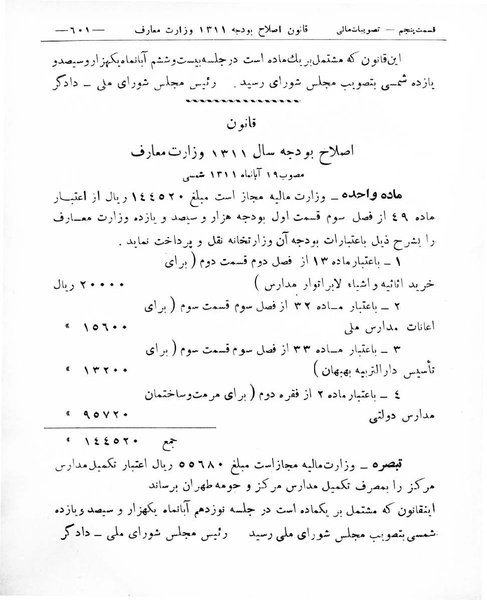 قسمت پنجم — تصویبات مالی قانون اصلاح بودجه ۱۳۱۱ وزارت معارف —۶۰۱—
این قانون که مشتمل بر یك ماده است در جلسه بیست و ششم آبانماه یکهزار و سیصد و
یازده شمسی بتصویب مجلس شورای رسید . رئیس مجلس شورای ملی ــ دادگر
قانون
اصلاح بودجه سال ۱۳۱۱ وزارت معارف
مصوب ۱۹ آبانماه ۱۳۱۱ شمسی
ماده واحده ــ وزارت مالیه مجاز است مبلغ ۱٤٤٥۲۰ ریال از اعتبار
ماده ٤۹ از فصل سوم قسمت اول بودجه هزار و سیصد و یازده وزارت معارف
را بشرح ذیل باعتبارات بودجه آن وزارتخانه نقل و پرداخت نماید .
۱ ــ باعتبار ماده ۱۳ از فصل دوم قسمت دوم ( برای
خرید اثاثیه و اشیاء لابراتوار مدارس ) ۲۰۰۰۰ ریال
۲ ــ باعتبار ماده ۳۲ از فصل سوم قسمت سوم ( برای
اعانات مدارس ملی ۱٥٦۰۰ »
۳ ــ باعتبار ماده ۳۳ از فصل سوم قسمت سوم ( برای
تأسیس دارالتربیه بهبهان ) ۱۳۲۰۰ »
٤ ــ باعتبار ماده ۲ از فقره دوم ( برای مرمت و ساختمان
مدارس دولتی ۹٥۷۲۰ »
جمع ۱٤٤٥۲۰ »
تبصره ــ وزارت مالیه مجاز است مبلغ ٥٥٦۸۰ ریال اعتبار تکمیل مدارس
مرکز را بمصرف تکمیل مدارس مرکز و حومه طهران برساند
اینقانون که مشتمل بر یکماده است در جلسه نوزدهم آبانماه یکهزار و سیصد و یازده
شمسی بتصویب مجلس شورای ملی رسید رئیس مجلس شورای ملی ــ دادگر